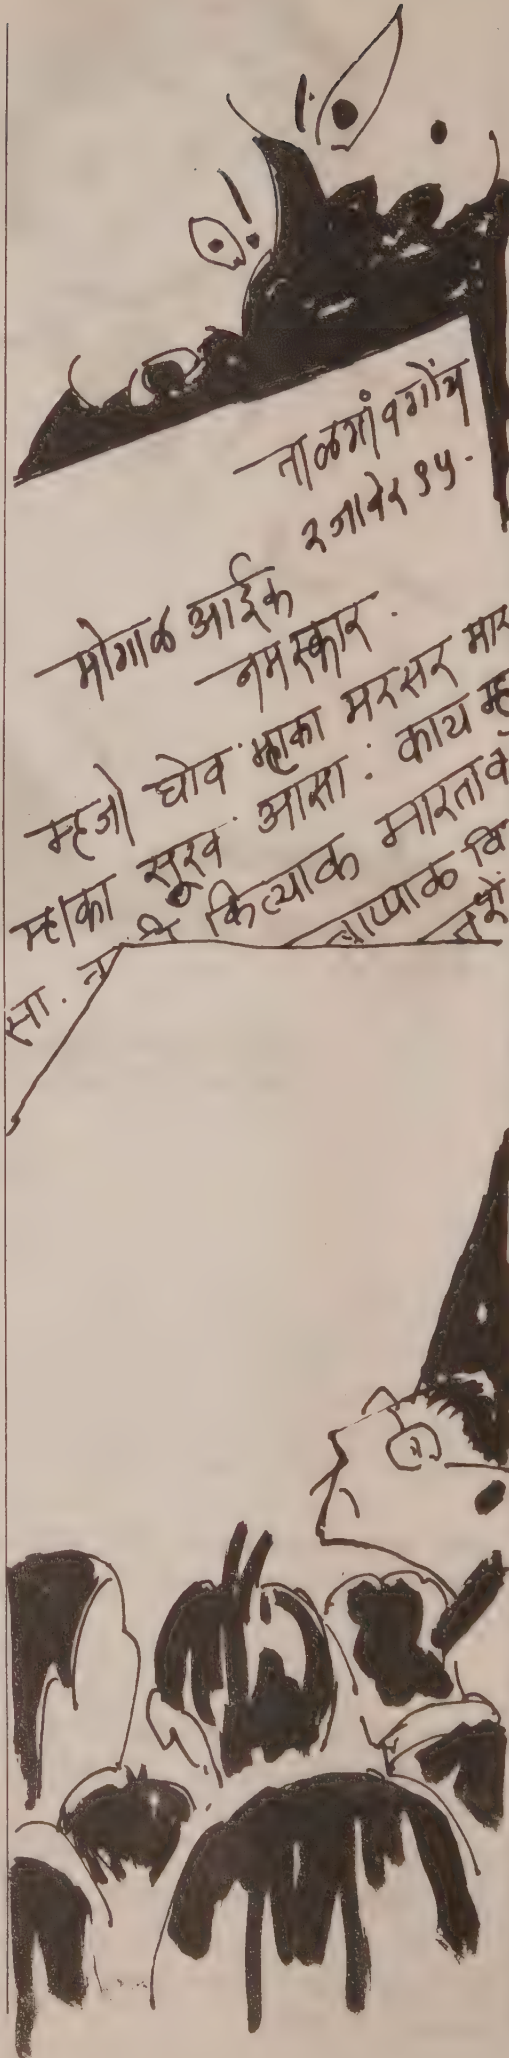 ताळगांव गोंय
२ जानेर ९५.
मोगाळ आईक
नमस्कार.
म्हजो घोव म्हाका मरसर मार
म्हाका सूख आसा. काय म्ह
सा. कित्याक मारताव
बाप्पाक वि